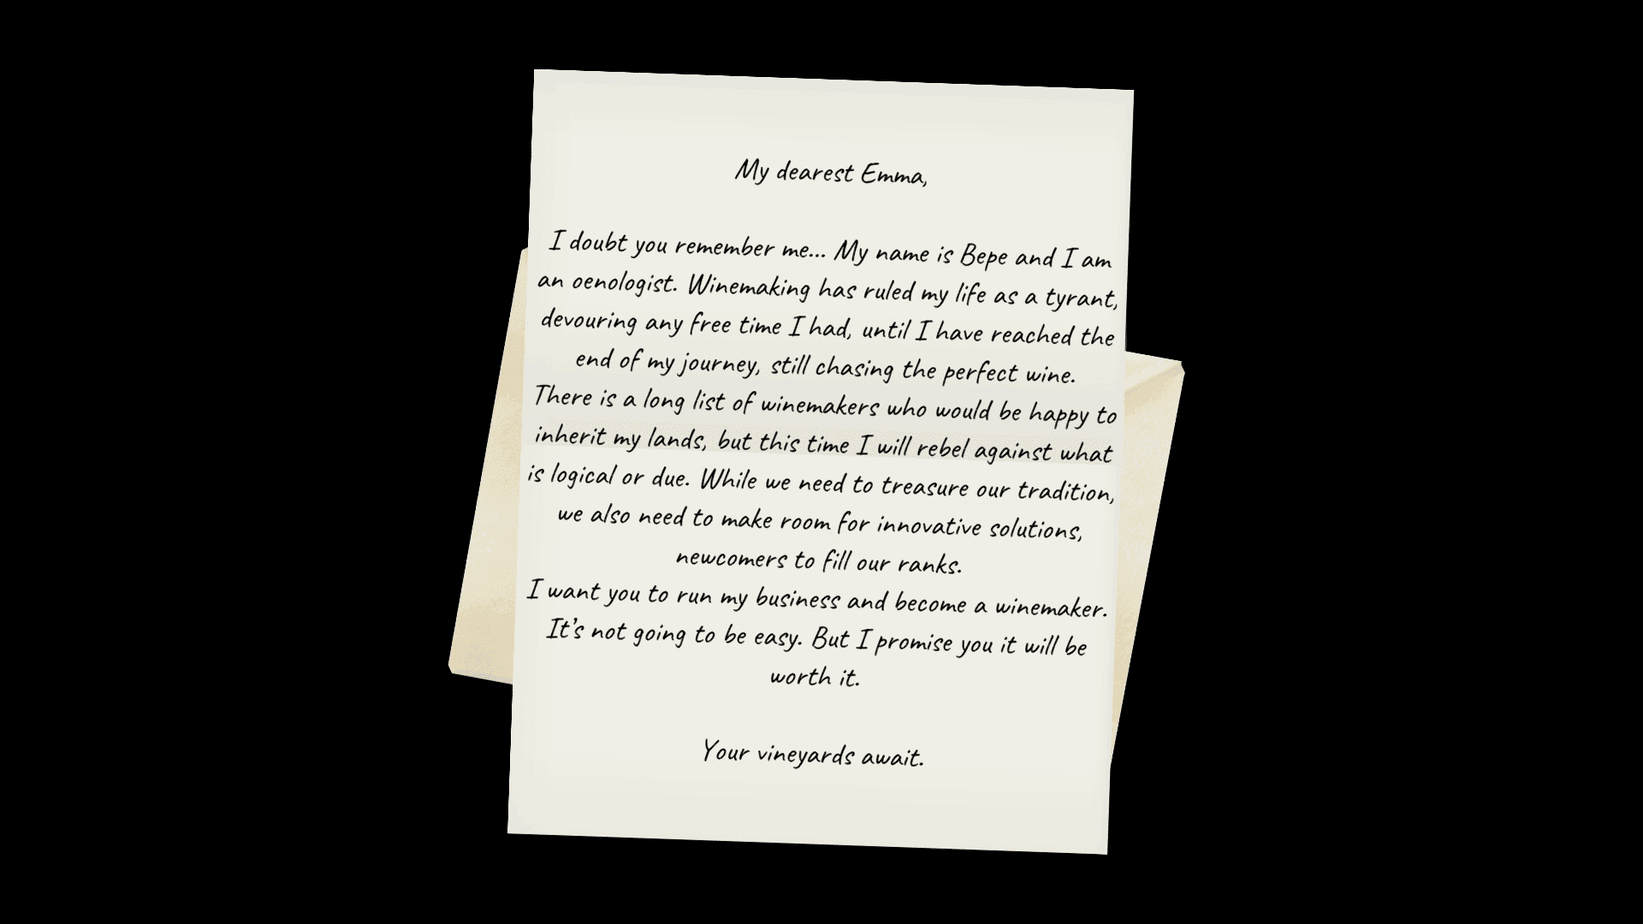 My dearest Emma,
I doubt you remember me... My name is Bepe and I am
an oenologist. Winemaking has ruled my life as a tyrant,
devouring any free time I had, until I have reached the
end of my journey, still chasing the perfect wine.
There is a long list of winemakers who would be happy to
inherit my lands, but this time I will rebel against what
is logical or due. While we need to treasure our tradition,
we also need to make room for innovative solutions,
newcomers to fill our ranks.
I want you to run my business and become a winemaker.
It's not going to be easy. But I promise you it will be
worth it.
Your vineyards await.